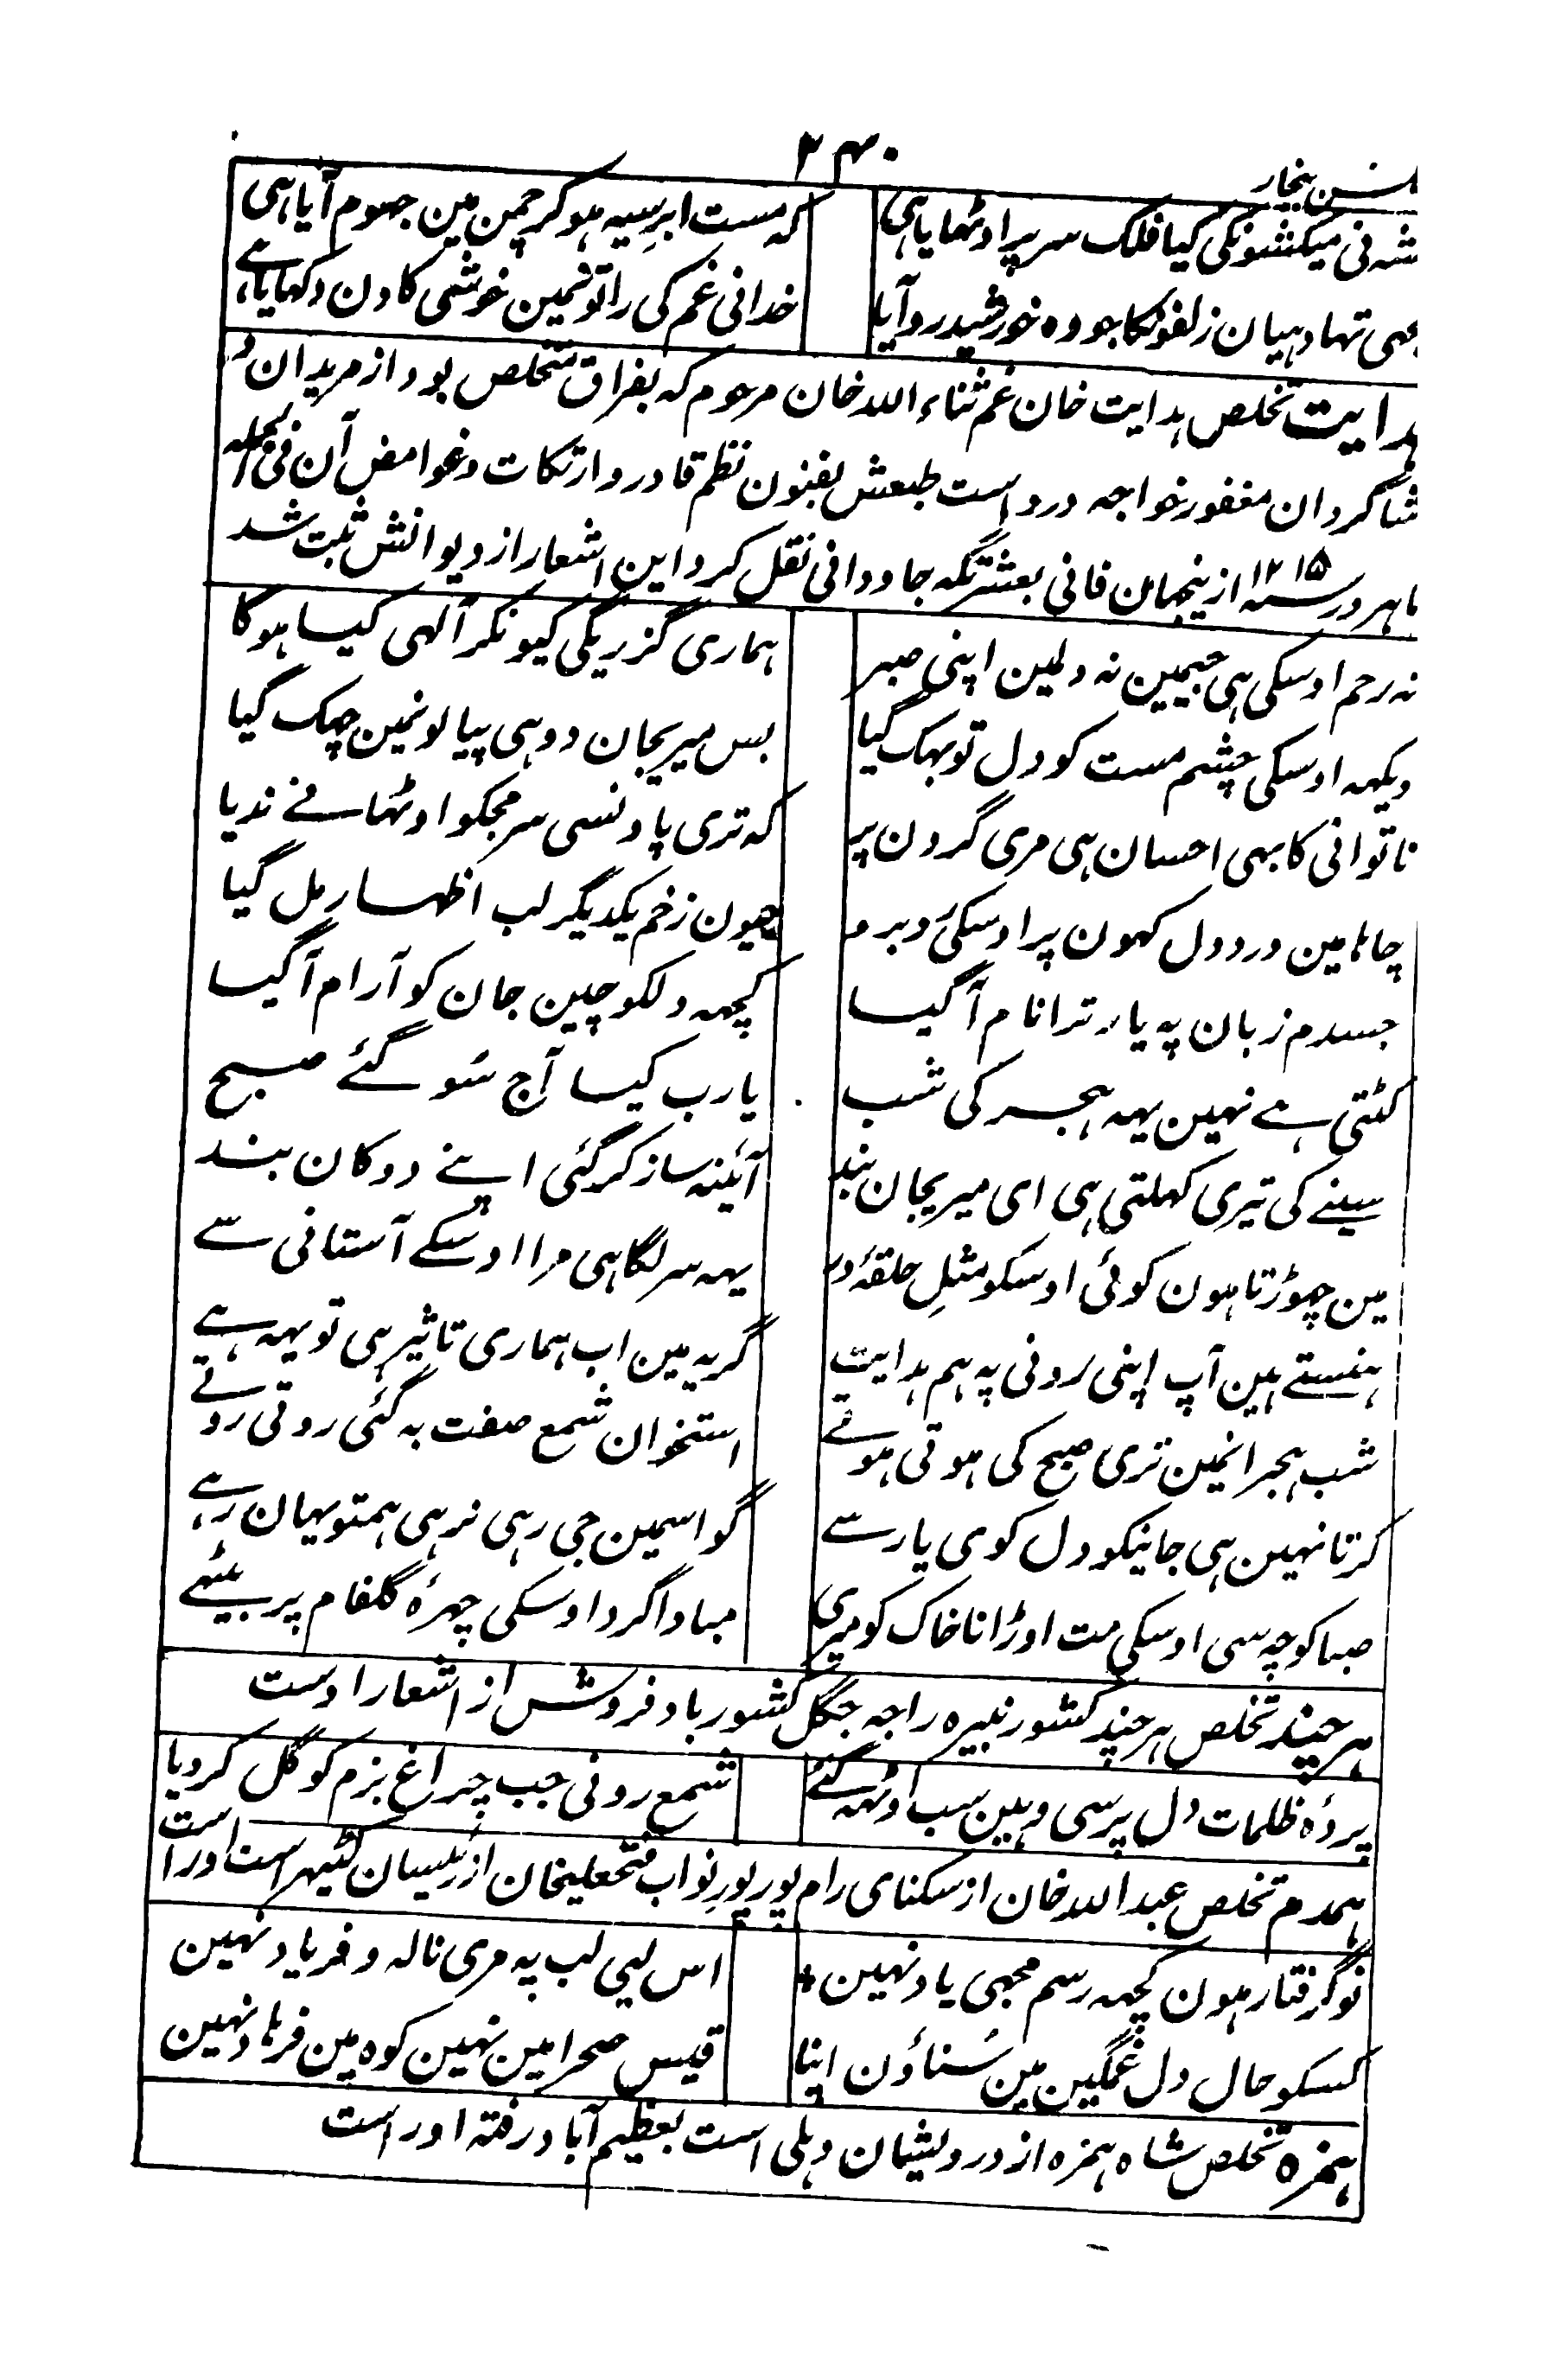 ۳۴۰
گلشن بیخار
شہ نی میکشونکی کیا فلک سر پر اوٹھایا ہی
کہ مست ابرِ سیہ ہو کر چمن مین جھوم آیا ہی
تھا دہیان زلفونکا جو وہ خورشید رو آیا
خدانی غم کی راتونمین خوشی کا دن دکھایا ہے
ہدایت تخلص ہدایت خان عم ثناء اللہ خان مرحوم کہ بفراق متخلص بود از مریدان و
شاگردان مغفور خواجہ درد است طبعش بفنون نظم قادر و از نکات و غوامض آن فی الجملہ
ماہر در سنہ ۱۲۱۵ ازینجہان فانی بعشرتگہ جاودانی نقل کرد این اشعار از دیوانش ثبت شد
نہ رحم اوسکی ہی جیمین نہ دلمین اپنی صبر
ہماری گزریگی کیونکر آلہی کیسا ہوگا
دیکہہ اوسکی چشم مست کو دل تو بہک گیا
بس میریجان دوہی پیالونمین چھک گیا
ناتوانی کا بھی احسان ہی مری گردن پر
کہ تری پاونسی سر مجکو اوٹھانے ندیا
چاہا مین درد دل کہون پر اوسکی روبرو
جیون زخم یکدیگر لب اظہار مل گیا
جسدم زبان پہ یار ترا نام آگیا
کچہہ دلکو چین جان کو آرام آگیا
کٹتی ہے نہین یہہ ہجر کی شب
یارب کیسا آج سَو گئے صبح
سینے کی تیری کھلتی ہی ای میریجان بند
آئینہ ساز کر گئی اپنے دوکان بند
مین چھوڑتا ہون کوئی اوسکو مثلِ حلقۂ در
یہہ سر لگا ہی مرا اوسکے آستانی سے
ہنستے ہین آپ اپنی رونی پہ ہم ہدایت
گریہ مین اب ہماری تاثیر ہی تو یہہ ہے
شب ہجرانمین تری صبح کی ہوتی ہوتے
استخوان شمع صفت بہ گئی روتی روتے
کرتا نہین ہی جانیکو دل کوی یار سے
گو اسمین جی رہی نرہی ہمتو یہان رہے
صبا کوچہ سی اوسکی مت اوڑانا خاک کو میری
مبادا گرد اوسکی چہرۂ گلفام پر بیٹھے
ہرچند تخلص ہرچند کشور نبیرہ راجہ جگل کشور بادفروش از اشعار اوست
پردۂ ظلمات دل پر سی وہین سب اوٹہہ گئے
شمع رونی جب چراغ بزم کو گل کردیا
ہمدم تخلص عبد اللہ خان از سکنای رام پور پور نواب فتحعلیخان از رئیسان کٹیہر است اوراست
نوگرفتار ہون کچہہ رسم مجھی یاد نہین
اس لیی لب پہ مری نالہ و فریاد نہین
کسکو حال دل غمگین مین سُناؤن اپنا
قیس صحرا مین نہین کوہ مین فرہاد نہین
ہمزہ تخلص شاہ ہمزہ از درویشان دہلی است بعظیم آباد رفتہ اوراست